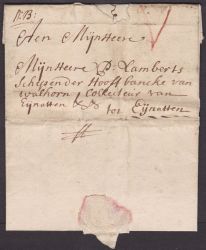 N:B:
Aen Mijn Heere
Mijn Heere P: Lamberts
Schepender Hooft bancke van
walhorn, Collecteur van
Eijnatten &&
tot Eijnatten